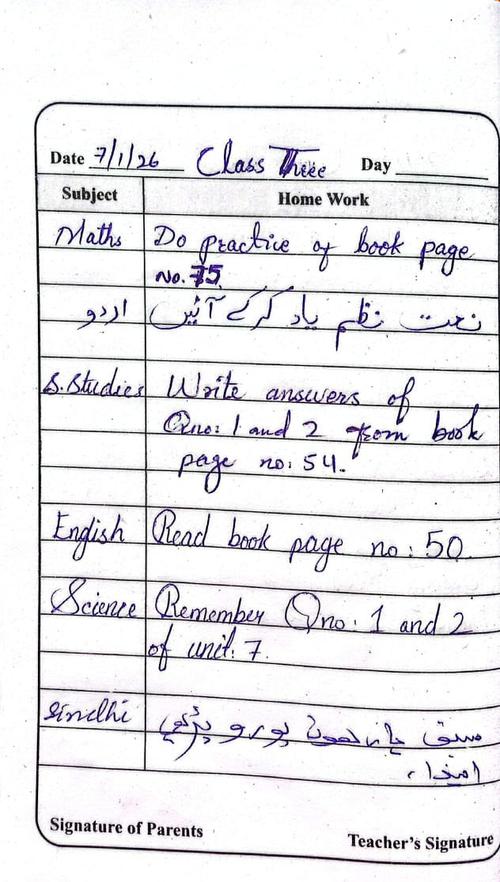 Date 7/1/26 Class Three Day
Subject Home Work
Maths Do practice of book page
No. 75
اردو نعت نظم یاد کرکے آئیں
S.Studies Write answers of
Qno: 1 and 2 from book
page no: 54.
English Read book page no: 50
Science Remember Qno: 1 and 2
of unit: 7.
Sindhi سبق چانڊوڪي پورو پڙهي
ايندا،
Signature of Parents Teacher's Signature